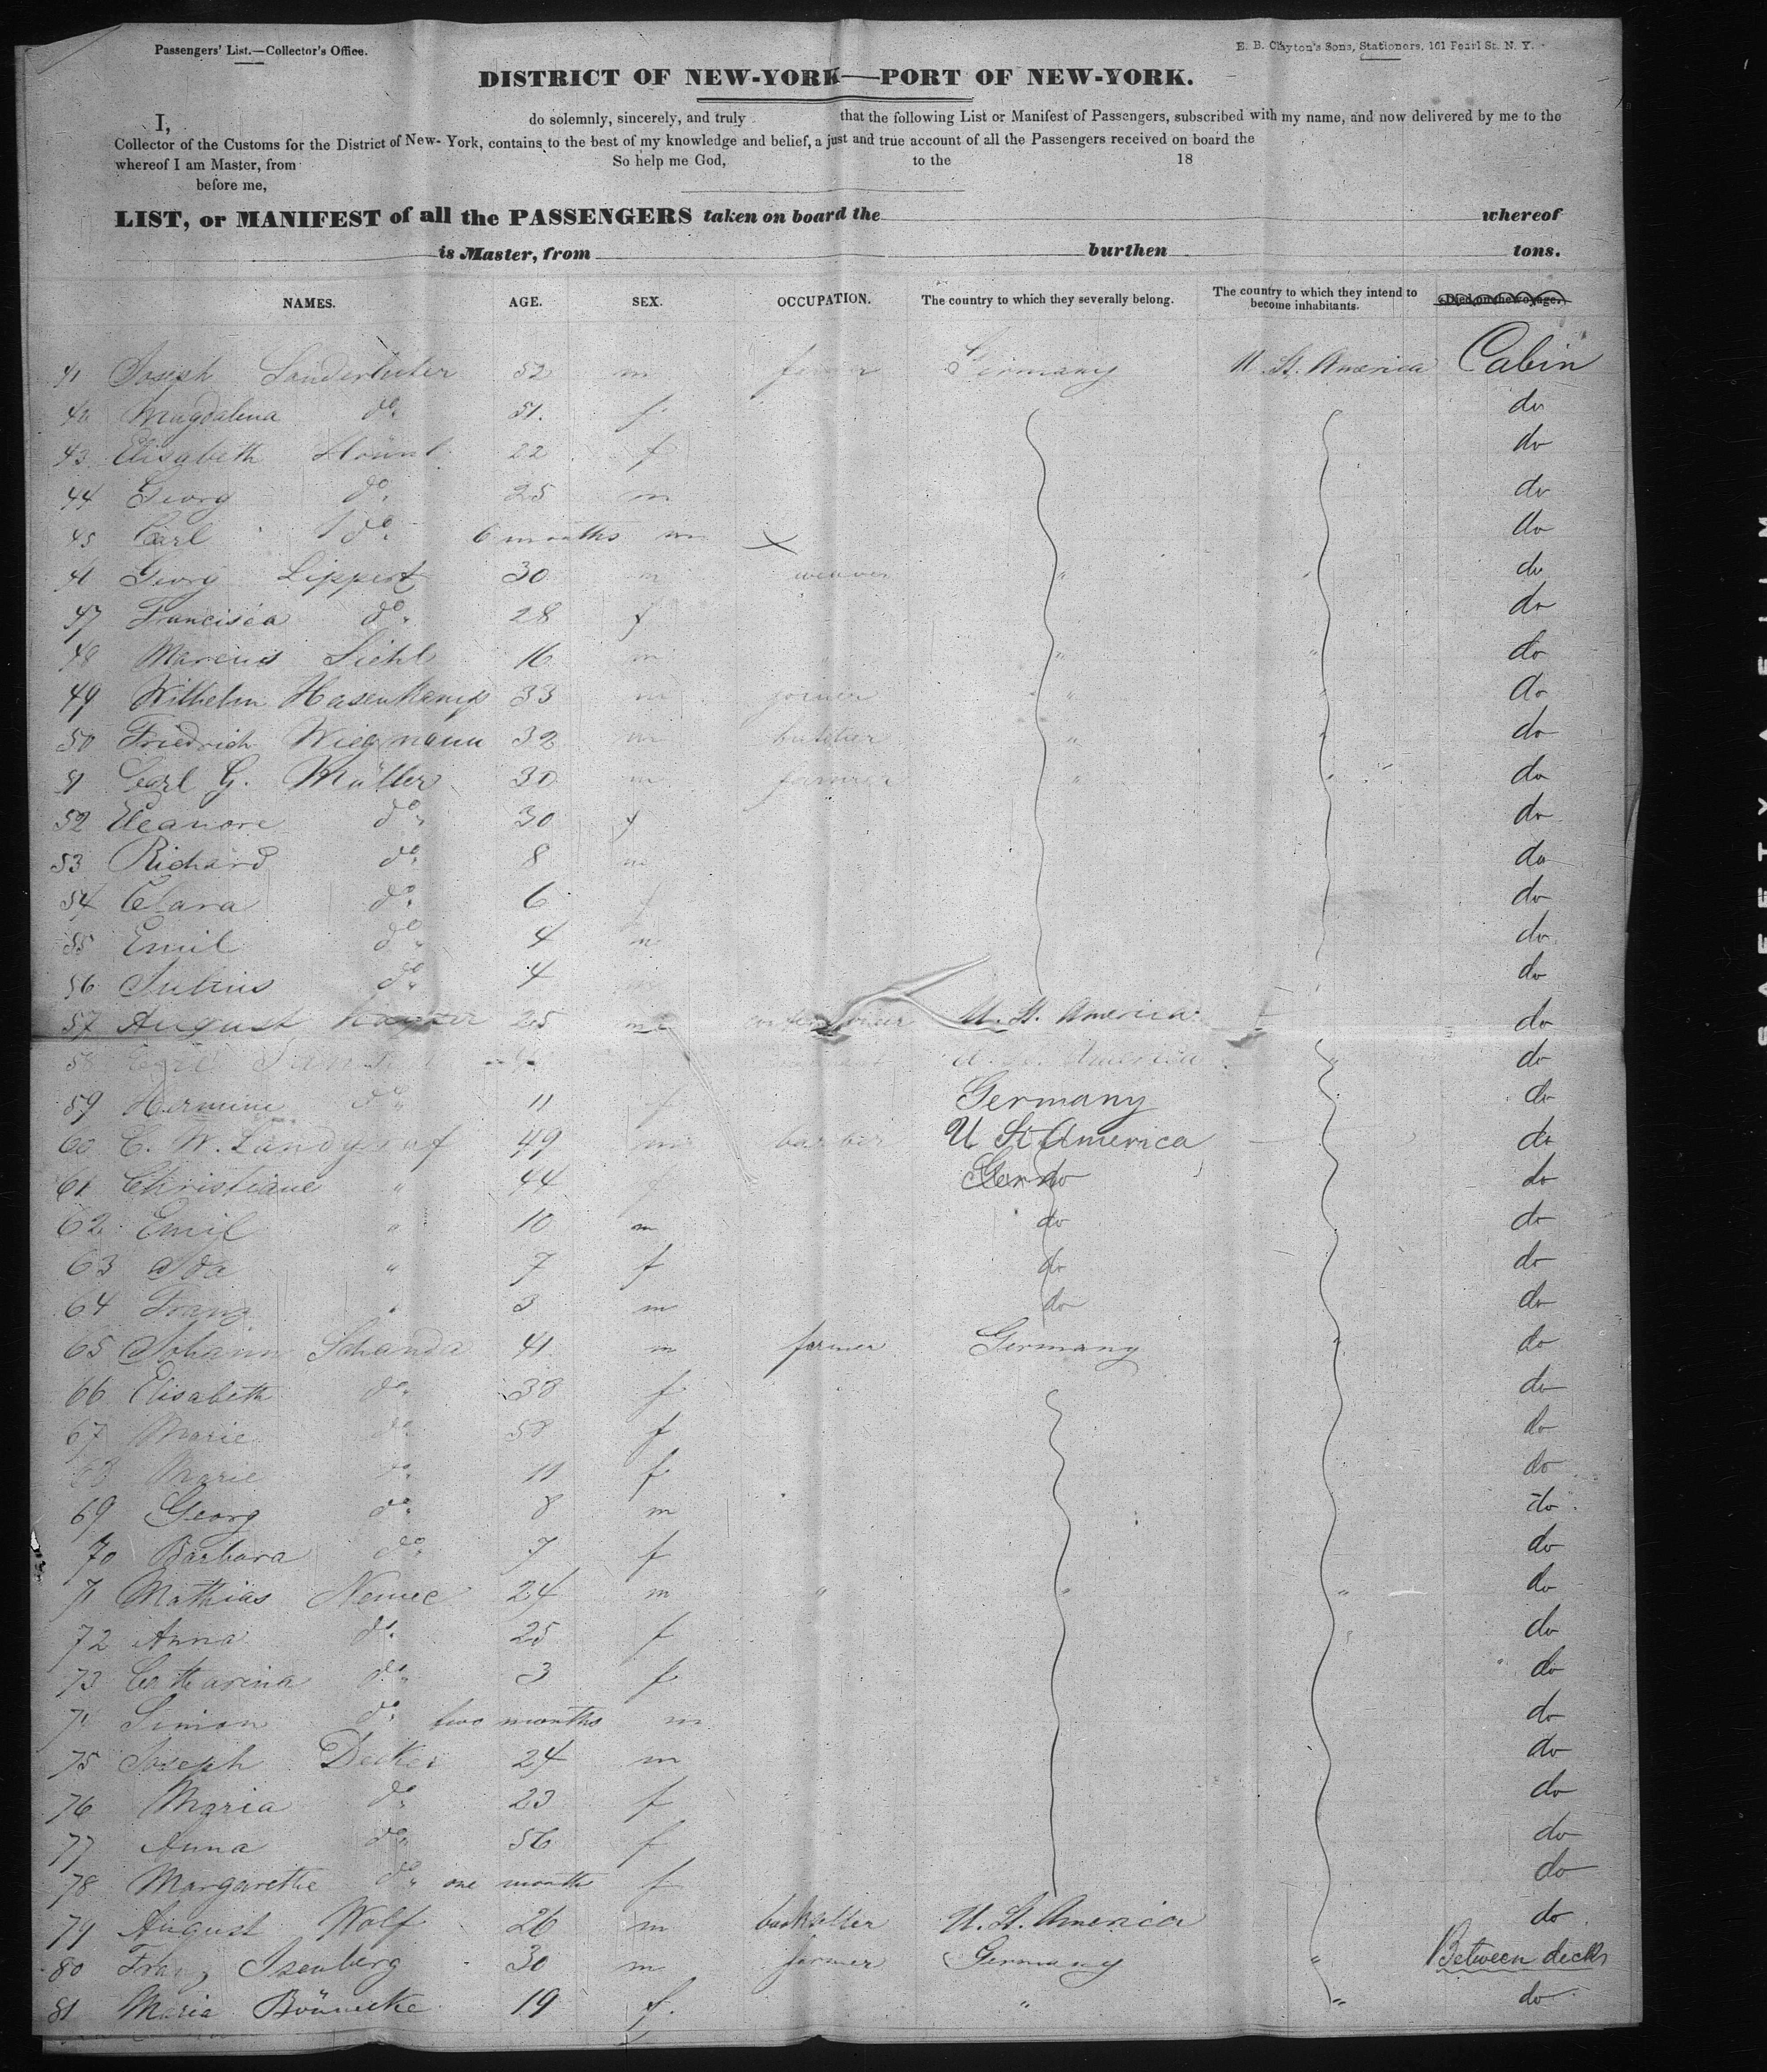 Passengers' List.—Collector's Office.
E. B. Clayton's Sons, Stationers, 161 Pearl St. N. Y.
DISTRICT OF NEW-YORK—PORT OF NEW-YORK.
I, do solemnly, sincerely, and truly that the following List or Manifest of Passengers, subscribed with my name, and now delivered by me to the
Collector of the Customs for the District of New-York, contains to the best of my knowledge and belief, a just and true account of all the Passengers received on board the
whereof I am Master, from So help me God, to the 18
before me,
LIST, or MANIFEST of all the PASSENGERS taken on board the whereof
is Master, from burthen tons.
NAMES. AGE. SEX. OCCUPATION. The country to which they severally belong. The country to which they intend to become inhabitants. Died on the voyage.
41 Joseph 52 m Germany U. St. America Cabin
42 Magdalena do. 51. f do
43 Elisabeth 22 f do
44 Georg do. 25 m do
45 Carl do. 6 months m do
46 Georg Lippert 30 m weaver " " do
47 Francisca do. 28 f do
48 Marcus Liehl 16 m " " do
49 Wilhelm Hasenkamp 33 m joiner " " do
50 Friedrich Wiegmann 32 m butcher " " do
51 Carl G. Müller 30 m farmer " " do
52 Eleanore do. 30 f do
53 Richard do. 8 m do
54 Clara do. 6 f do
55 Emil do. 4 m do
56 Julius do. 4 m do
57 August 25 m U. St. America do
58 U. St. America " do
59 Hermine do. 11 f Germany do
60 C. W. Landgraf 49 m barber U St America do
61 Christiane " 44 f do do
62 Emil " 10 m do do
63 Ida " 7 f do do
64 Franz " 3 m do do
65 Johann Schanda 41 m farmer Germany " do
66 Elisabeth do. 38 f do
67 Marie do. 58 f do
68 Marie do. 11 f do
69 Georg do. 8 m do
70 Barbara do. 7 f do
71 Mathias Nemec 24 m " " " do
72 Anna do. 25 f do
73 Catharina do. 3 f do
74 Simon do. two months m do
75 Joseph Decker 24 m do
76 Maria do. 23 f do
77 Anna do. 56 f do
78 Margarethe do. one month f do
79 August Wolf 26 m U. St. America do
80 Franz Isenberg 30 m farmer Germany " Between decks
81 Maria Bönneke 19 f. " " do
SAFETY FILM